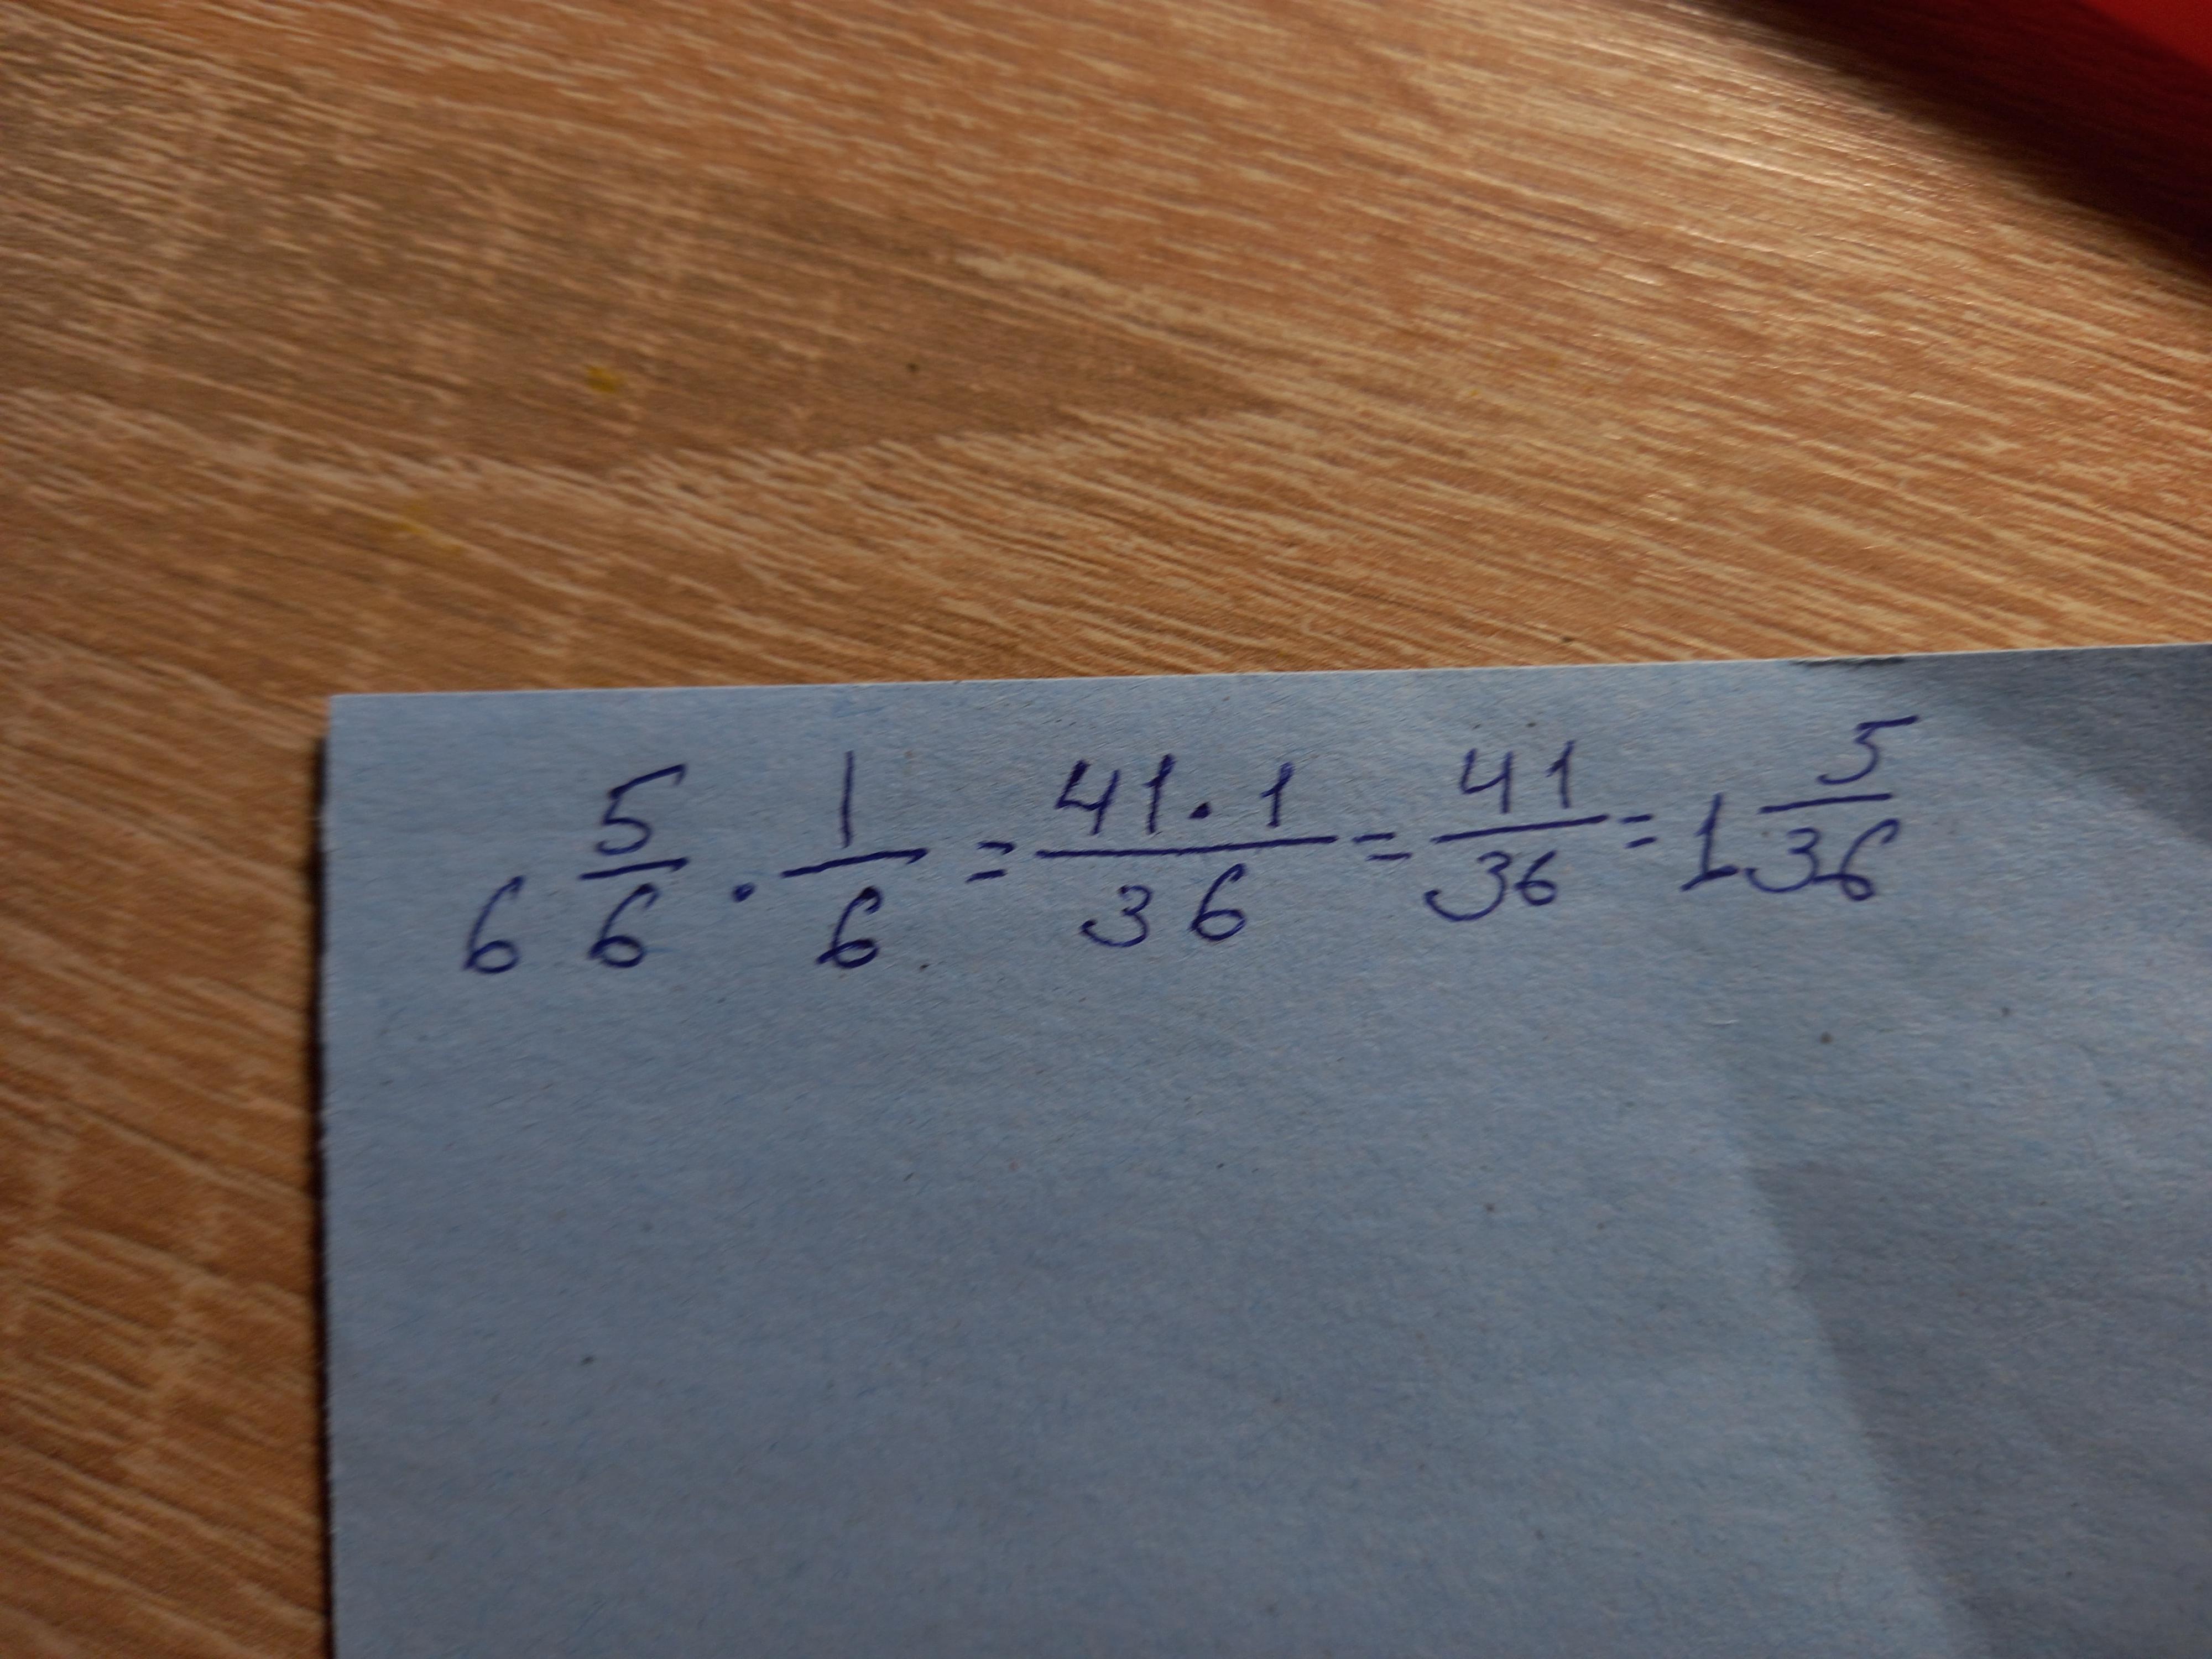 6 5/6 · 1/6 = 41·1/36 = 41/36 = 1 5/36